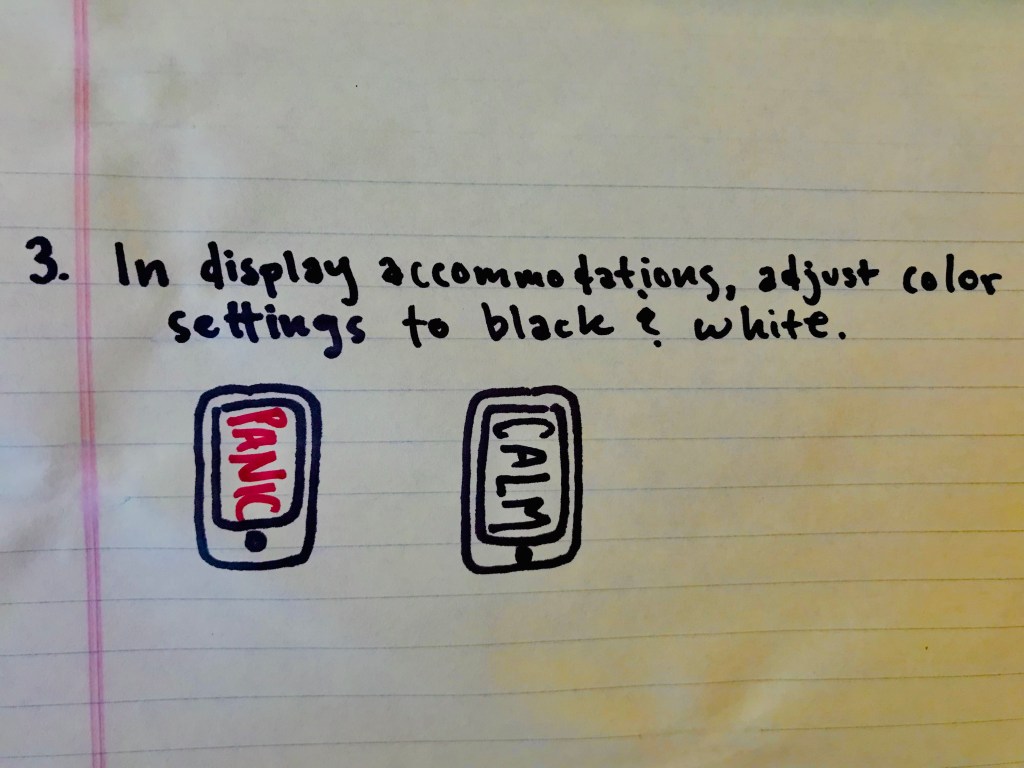 3. In display accommodations, adjust color
settings to black & white.
PANIC
CALM